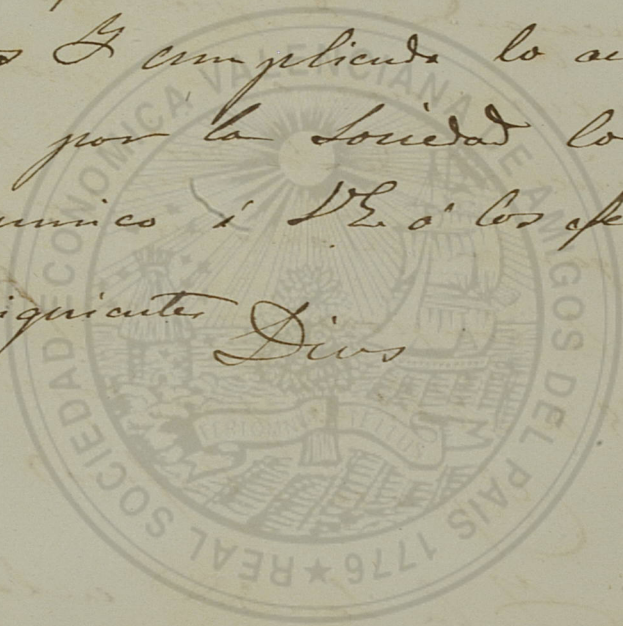 Y cumpliendo lo
por la Sociedad lo
unico á VE á los
iguientes Dios
REAL SOCIEDAD ECONOMICA VALENCIANA DE AMIGOS DEL PAIS 1776 ★
FERT OMNIA TELLUS